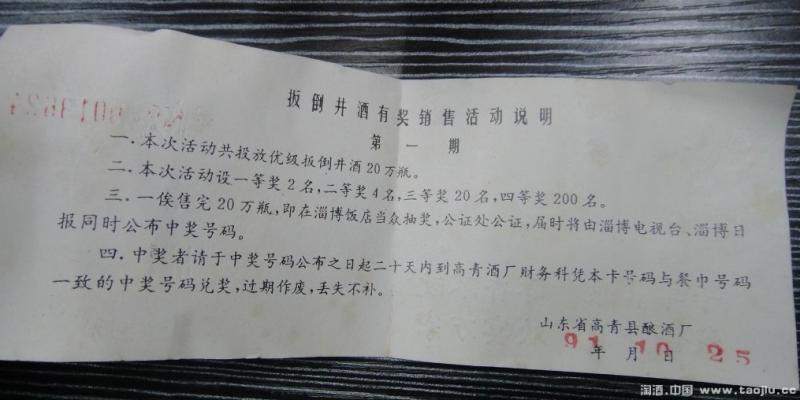 扳倒井酒有奖销售活动说明
第一期
一.本次活动共投放优级扳倒井酒20万瓶。
二.本次活动设一等奖2名,二等奖4名,三等奖20名,四等奖200名。
三.一俟售完20万瓶,即在淄博饭店当众抽奖,公证处公证,届时将由淄博电视台、淄博日
报同时公布中奖号码。
四.中奖者请于中奖号码公布之日起二十天内到高青酒厂财务科凭本卡号码与餐巾号码
一致的中奖号码兑奖,过期作废,丢失不补。
山东省高青县酿酒厂
91年10月25日
淘酒.中国 www.taojiu.cc